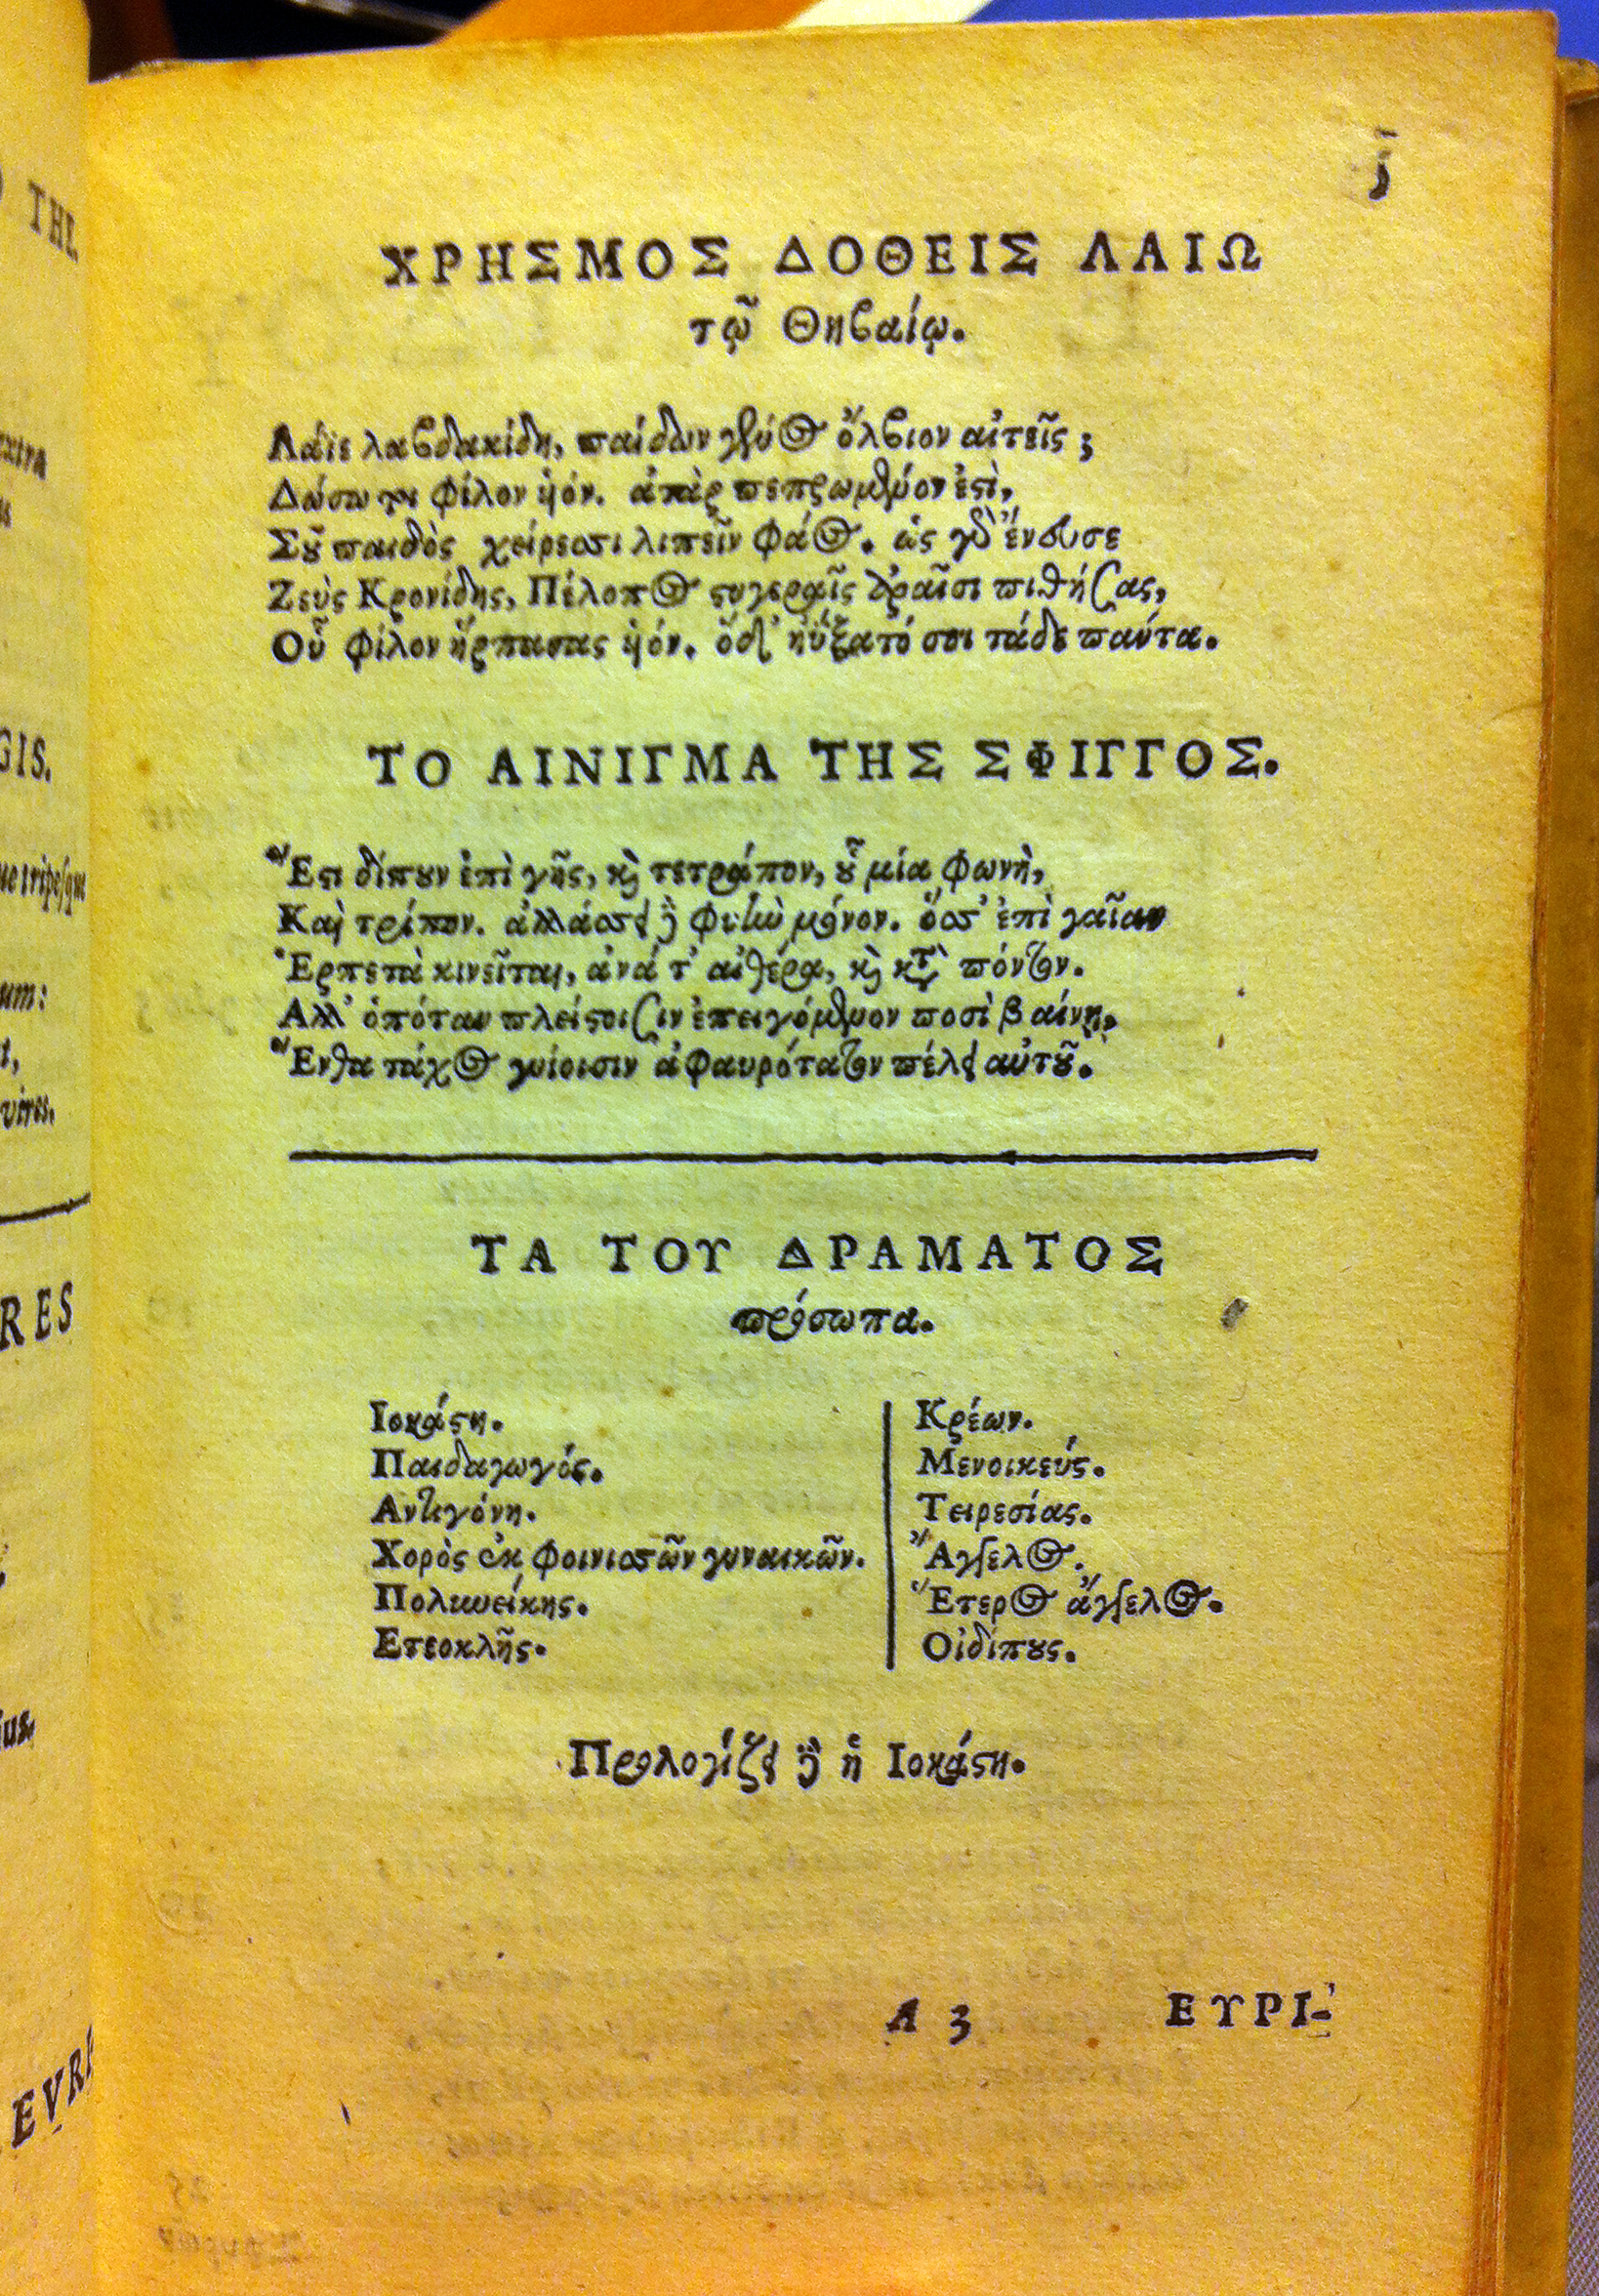 ȷ
ΧΡΗΣΜΟΣ ΔΟΘΕΙΣ ΛΑΙΩ
τῷ Θηβαίῳ.
Λάϊε λαβδακίδη, παίδων γένος ὄλβιον αἰτεῖς;
Δώσω τοι φίλον ἡόν. ἀτὰρ πεπρωμένον ἐστὶ,
Σοῦ παιδὸς χείρεσσι λιπεῖν φάος. ὡς γὰρ ἔνευσε
Ζεὺς Κρονίδης, Πέλοπος στυγεραῖς ἀραῖσι πιθήσας,
Οὗ φίλον ἥρπασας ἡόν. ὅδ' ηὔξατό σοι τάδε πάντα.
ΤΟ ΑΙΝΙΓΜΑ ΤΗΣ ΣΦΙΓΓΟΣ.
Ἔστι δίπουν ἐπὶ γῆς, καὶ τετράπον, οὗ μία φωνὴ,
Καὶ τρίπον. ἀλλάσσει δὲ φυὴν μόνον. ὅσσ' ἐπὶ γαῖαν
Ἑρπετὰ κινεῖται, ἀνά τ' αἰθέρα, καὶ κατὰ πόντον.
Αλλ' ὁπόταν πλείστοισιν ἐπειγόμενον ποσὶ βαίνῃ,
Ἔνθα τάχος γυίοισιν ἀφαυρότατον πέλει αὐτοῦ.
ΤΑ ΤΟΥ ΔΡΑΜΑΤΟΣ
πρόσωπα.
Ιοκάστη.
Παιδαγωγός.
Αντιγόνη.
Χορὸς ἐκ φοινισσῶν γυναικῶν.
Πολυνείκης.
Ετεοκλῆς.
Κρέων.
Μενοικεύς.
Τειρεσίας.
Ἄγγελος.
Ἕτερος ἄγγελος.
Οἰδίπους.
Προλογίζει δὲ ἡ Ιοκάστη.
A 3 ΕΥΡΙ-